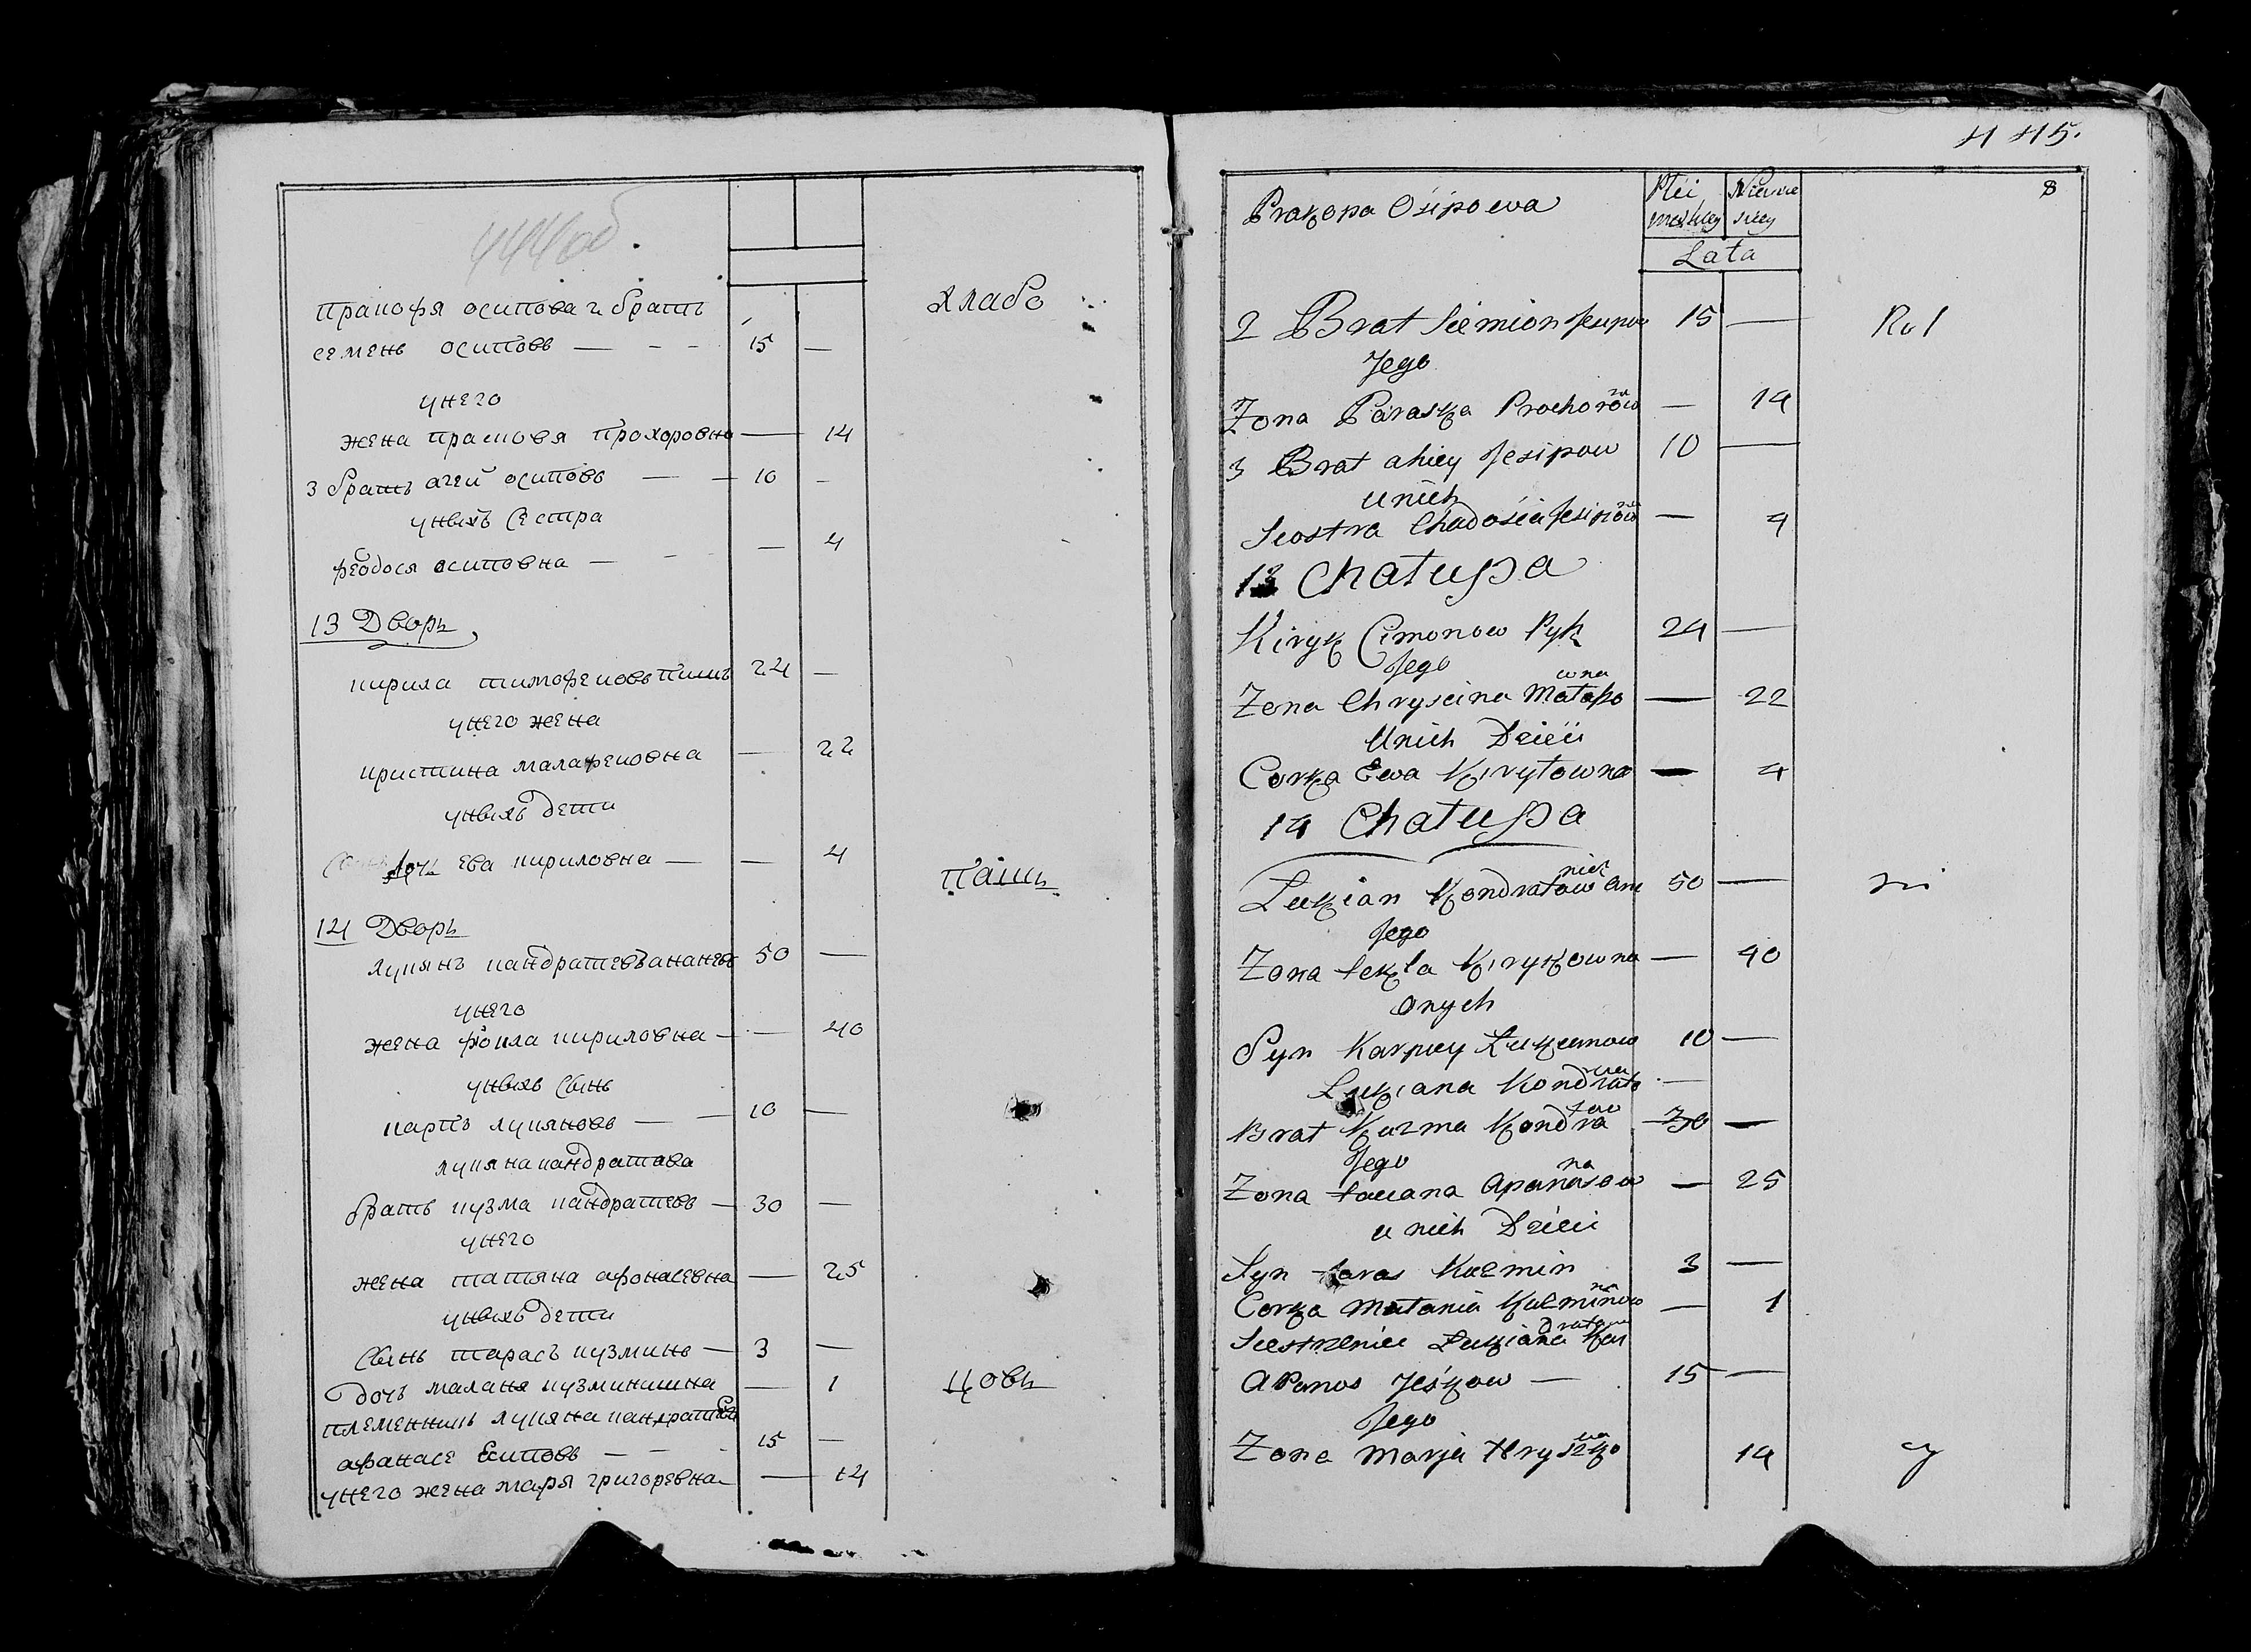 444об.
хлабо
прапофя осипова 2 братъ
семенъ осиповъ — - - 15 —
унего
жена прасковя прохоровна — 14
3 братъ агей осиповъ — — 10 -
унихъ сестра
феодося осиповна — - — 4
13 Дворъ
кирила тимофеиовъ пикъ 24 —
унего жена
кристина малафеиовна — 22
унихъ дети
дочь ева кириловна — — 4
пашъ
14 Дворъ
лукянъ кандратевъ ананевъ 50 —
унего
жена фіокла кириловна — — 40
унихъ сынъ
карпъ лукяновъ — — 10 —
лукяна кандратава
братъ кузма кандратевъ — 30 —
унего
жена татяна афонасевна — 25
унихъ дети
сынъ тарасъ кузминъ — 3 —
дочь маланя кузминишна — 1
цовъ
племенникъ лукяна кандратева
афанасе есиповъ — — - 15 —
унего жена маря григоревна — 14
445.
8
Prakopa Osipowa
Płci męskiey Niewieskiey
Lata
2 Brat Siemion Jesipow 15 — Rol
Jego
Zona Paraska Prochorowna — 14
3 Brat ahiey Jesipow 10 —
unich
Siostra Chadosia Jesipowna — 4
13 Chatupa
Kiryk Cimonow Pyk 24 —
Jego
Zena Chryscina Matofiowna — 22
Unich Dzieci
Corka Ewa Kirytowna — 4
14 Chatupa
Łukian Kondratow Ananiew 50 — ni
Jego
Zona tekla Kirykowna — 40
onych
Syn Karpiey Łukianow 10 —
Lukiana Kondratowa —
Brat Kuzma Kondratow 30 —
Jego
Zona taciana Apanasowna — 25
u nich Dzieci
Syn taras Kuzmin 3 —
Corka Matania Kuzminowna — 1
Siestrzeniec Łukiana Kondratowa
Apanas Jeśkow — 15 —
Jego
Zona Marja Hryszkowna 14 cy